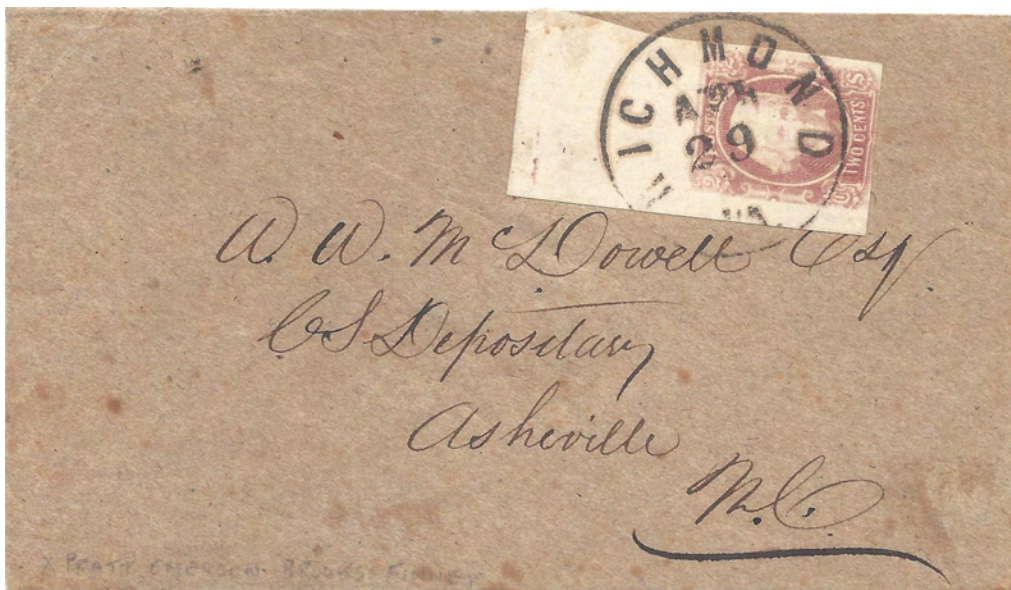 RICHMOND VA.
APR
29
POSTAGE
TWO CENTS
W. W. McDowell Esqr.
CS Depositary
Asheville
N.C.
X PRATT EMERSON. BROOKS FINNEY